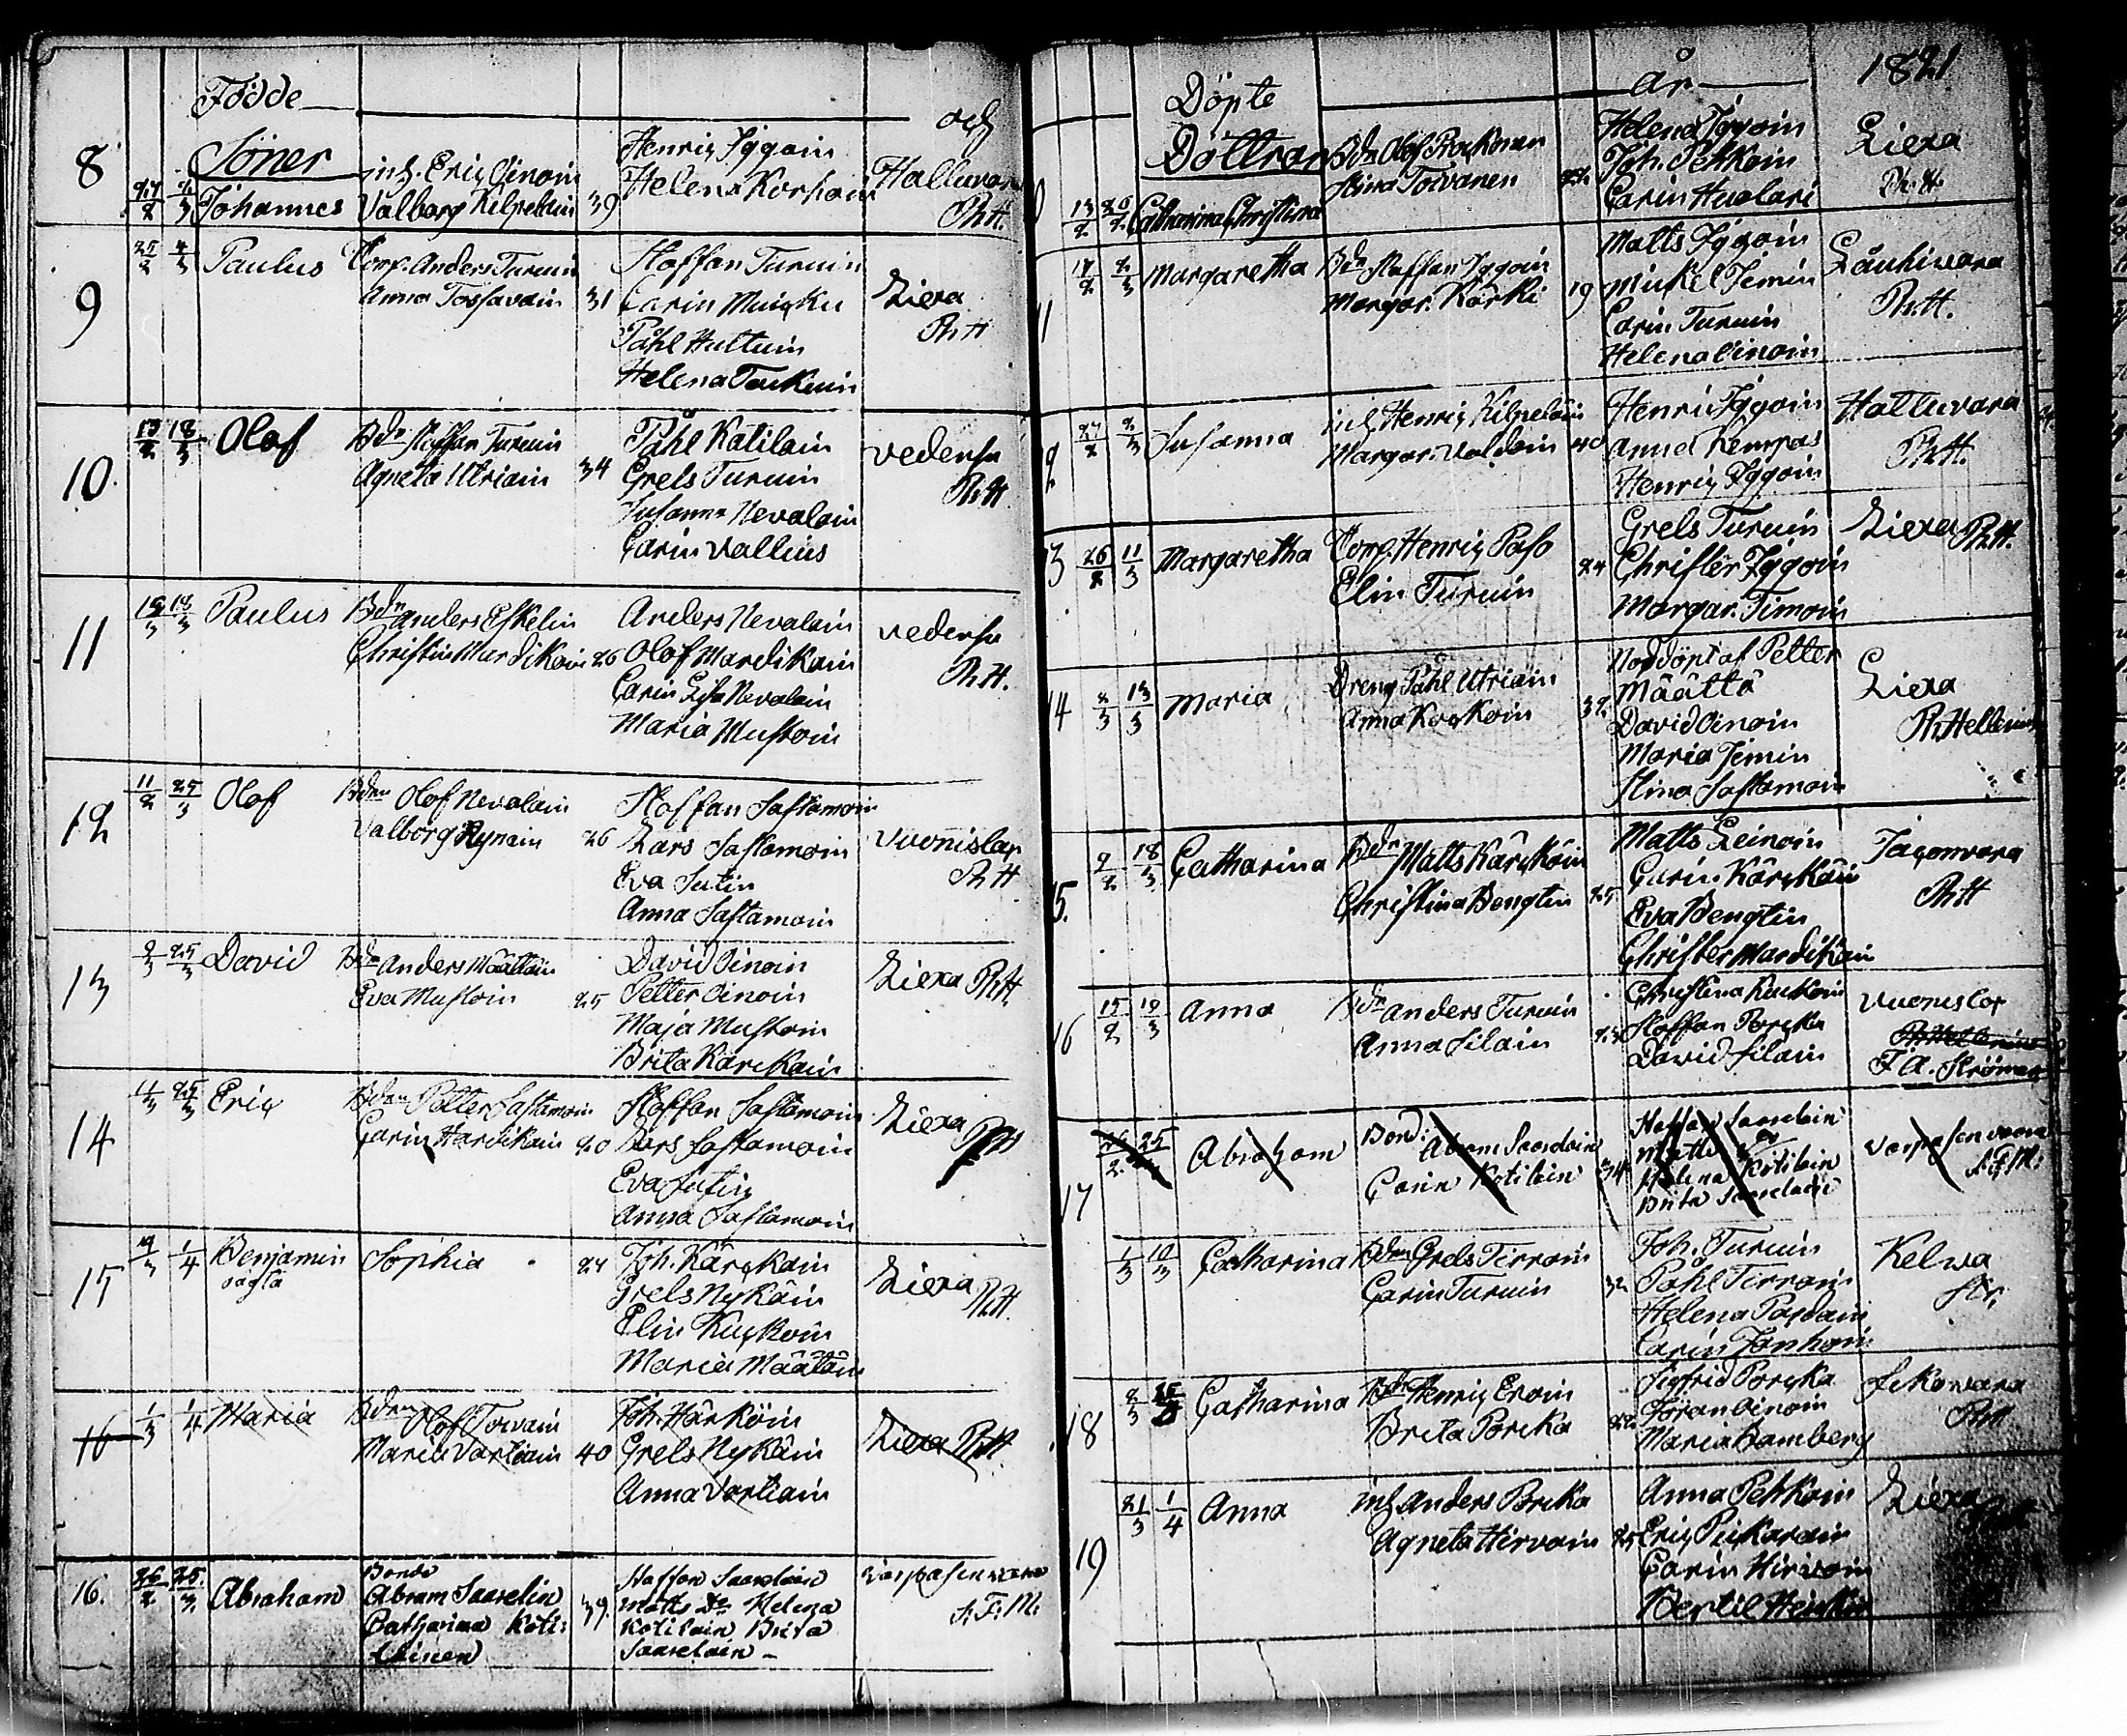 Födde
och
Söner
8
27/2 2/3 Johannes
inh. Eric Oinoin
Valborg Kilpeläin 39
Henric Iggoin
Helena Korhoin
Halluvara
Ph.H.
9
25/2 4/3 Paulus
Corp. Anders Turuin
Anna Tossavain 31
Staffan Turuin
Carin
Påhl Huttuin
Helena Toukuin
Liexa
Ph.H
10.
18/3 Olof
Bdn Staffan Turuin
Agneta Utriain 34
Påhl Kåtilain
Grels Turuin
Susanna Nevalain
Carin Vallius
Ph.H
11
18/3 Paulus
Bdn Anders Eskelin
Christin Mardikain 26
Anders Nevalain
Olof Mardikain
Carin Lisa Nevalain
Maria Mustoin
Ph.H.
12
11/2 25/3 Olof
Bdn Olof Nevalain
Valborg Rynäin 26
Staffan Sastamoin
Lars Sastamoin
Eva Sutin
Anna Sastamoin
Vuonislax
Ph.H
13
25/3 David
Bdn Anders Määttäin
Eva Mustoin 25
David Oinoin
Petter Oinoin
Maja Mustoin
Brita Kärckäin
Liexa Ph.H.
14
25/3 Eric
Bdn Petter Sastamoin
Carin Hardikain 20
Staffan Sastamoin
Lars Sastamoin
Eva Sutin
Anna Sastamoin
Liexa Ph.H
15
1/4 Benjamin
oägta
Sophia 24
Joh. Kärckäin
Grels Nykäin
Elin Kuckoin
Maria Määtäin
Liexa Ph.H.
16
1/3 1/4 Maria
Bdn Olof Toivain
Maria Vartiain 40
Joh. Härköin
Grels Nykäin
Anna Vartiain
Liexa Ph.H.
16.
26/2 25/3 Abraham
Bonde
Abram Saarelin
Catharina Koti:
lainen
39.
Staffan Saarelain
Matts Do Helena
Kotilain Brita
Saarelain
A.F.M.
Döpte
år
1821
Döttrar
13/2 20/2 Catharina Christina
Bdn Olof
Stina Toivanen 22
Helena Iggoin
Joh. Petkoin
Carin Hualari
Liexa
Ph.H.
11
17/2 2/3 Margaretha
Bdn Staffan Iggoin
Margar. Kärki 19
Matts Iggoin
Mickel Jemin
Carin Turuin
Helena Oinoin
Ph.H.
27/2 2/3 Susanna
inh Henric Kilpeläin
Margar. 40
Henric Iggoin
Anna Kempas
Henric Iggoin
Hattuvara
Ph.H.
13
26/2 11/3 Margaretha
Corp. Henric Paso
Elin Turuin 24
Grels Turuin
Christer Iggoin
Margar. Timoin
Liexa Ph.H.
14
2/3 13/3 Maria
Dreng Påhl Utriain
Anna Kockoin 32
Nöddöpt af Petter
Määttä
David Oinoin
Maria Jemin
Stina Sastamoin
Liexa
Ph.Hellenius
15.
9/2 18/3 Catharina
Bdn Matts Kärckäin
Christina Bengtin 25
Matts Leinoin
Carin Kärckäin
Eva Bengtin
Christer Mardikäin
Jaconvara
Ph.H
16
15/2 19/3 Anna
Bdn Anders Turuin
Anna Silain 23
Christina Kuckoin
Staffan Porcka
David Silain
Vuonislax
Ph. Hellenius
F A. Ströman
17
26/2 25/3 Abraham
Bond: Abram Saarelain
Carin Kotilain 34
Staffan Saarelain
Matts Do
Helena Kotilain
Brita Saarelain
A.F.M:
1/3 10/3 Catharina
Bdn Grels Tirroin
Carin Turuin 32
Joh. Turuin
Påhl Tirroin
Helena
Carin
Kelwa
Str.
18
2/3 Catharina
Bdn Henric Eroin
Brita Porcka 22
Sigfrid Porcka
Jöran Oinoin
Maria Bamberg
Ph.H
19
21/3 1/4 Anna
inh Anders Porcka
Agneta Hirvoin 25
Anna Petkoin
Eric Pickarain
Carin Hirvoin
Bertil
Liexa